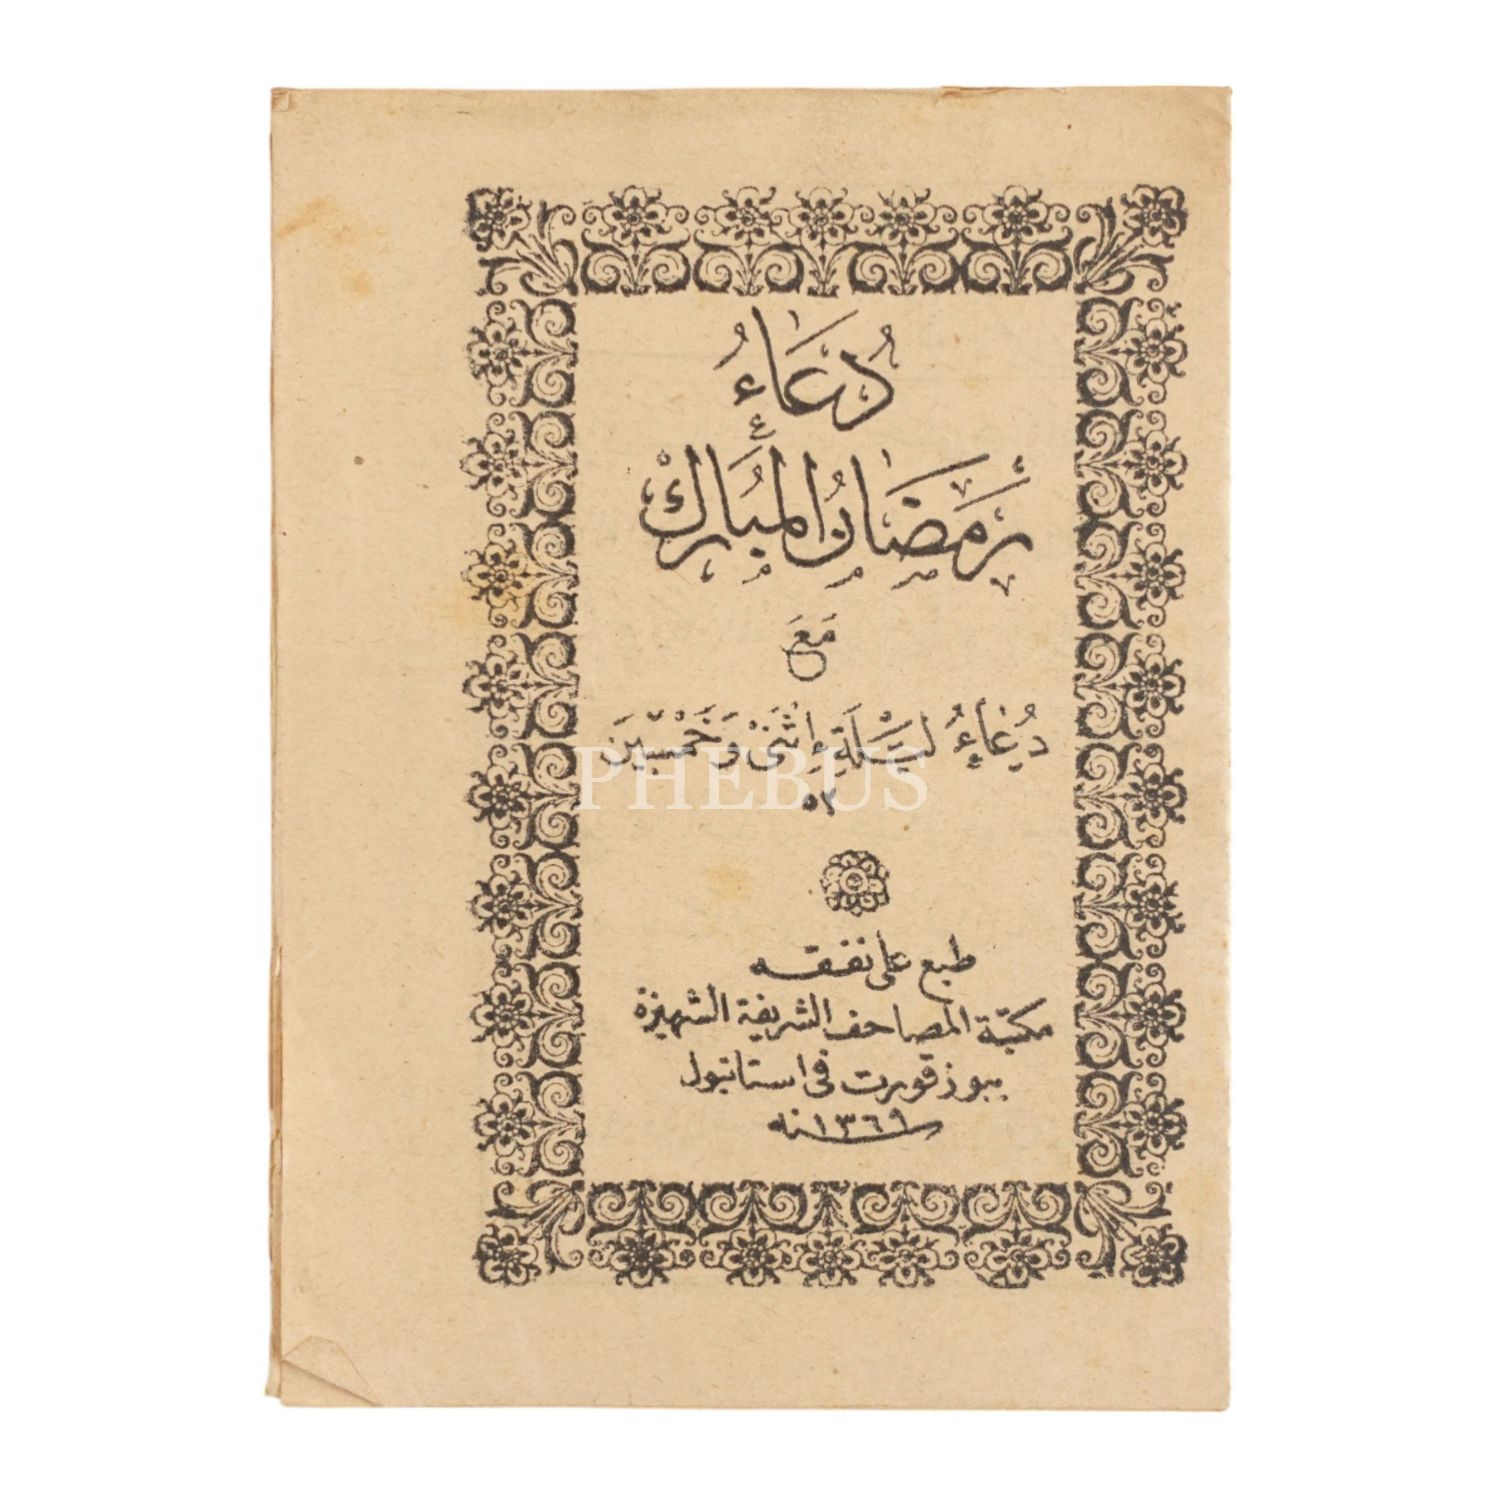 دُعَاءُ
رَمَضَانُ الْمُبَارَكْ
مَعَ
دُعَاءُ لَيْلَةِ اِثْنَىْ وَخَمْسِينَ
٥٢
PHEBUS
طبع على نفقه
مكتبة المصاحف الشريفة الشهيرة
ببوزقورت فى استانبول
سنه ١٣٦٩